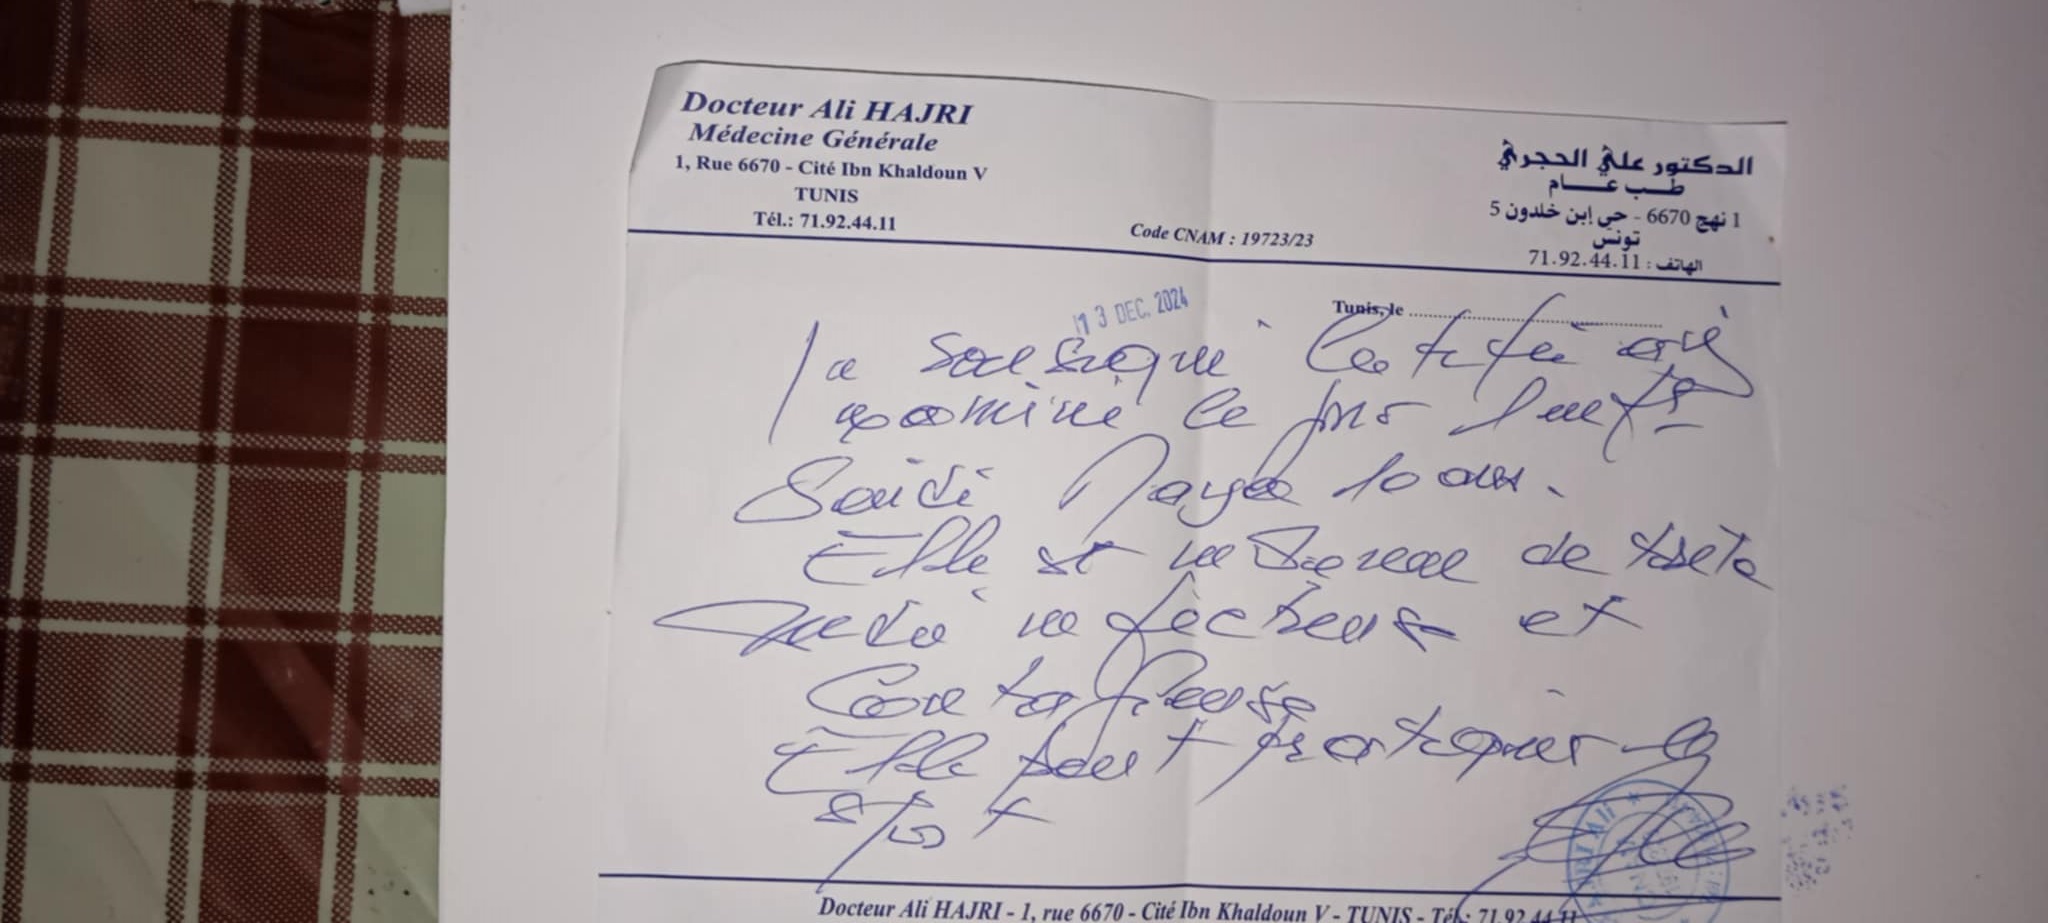 Docteur Ali HAJRI
Médecine Générale
1, Rue 6670 - Cité Ibn Khaldoun V
TUNIS
Tél.: 71.92.44.11
Code CNAM : 19723/23
الدكتور علي الحجري
طب عام
1 نهج 6670 - حي إبن خلدون 5
تونس
الهاتف : 71.92.44.11
Tunis, le
13 DEC. 2024
Je soussigné certifie avoir
examiné ce jour l'enfant
Saidi 10 ans.
Elle est indemne de toute
maladie infectieuse et
Contagieuse
Elle peut pratiquer le
sport
Docteur Ali HAJRI - 1, rue 6670 - Cité Ibn Khaldoun V - TUNIS - Tél.: 71.92.44.11